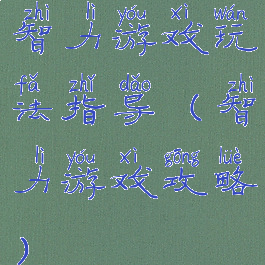 zhì lì yóu xì wán
智力游戏玩
fǎ zhǐ dǎo zhì
法指导（智
lì yóu xì gōng lüè
力游戏攻略
）